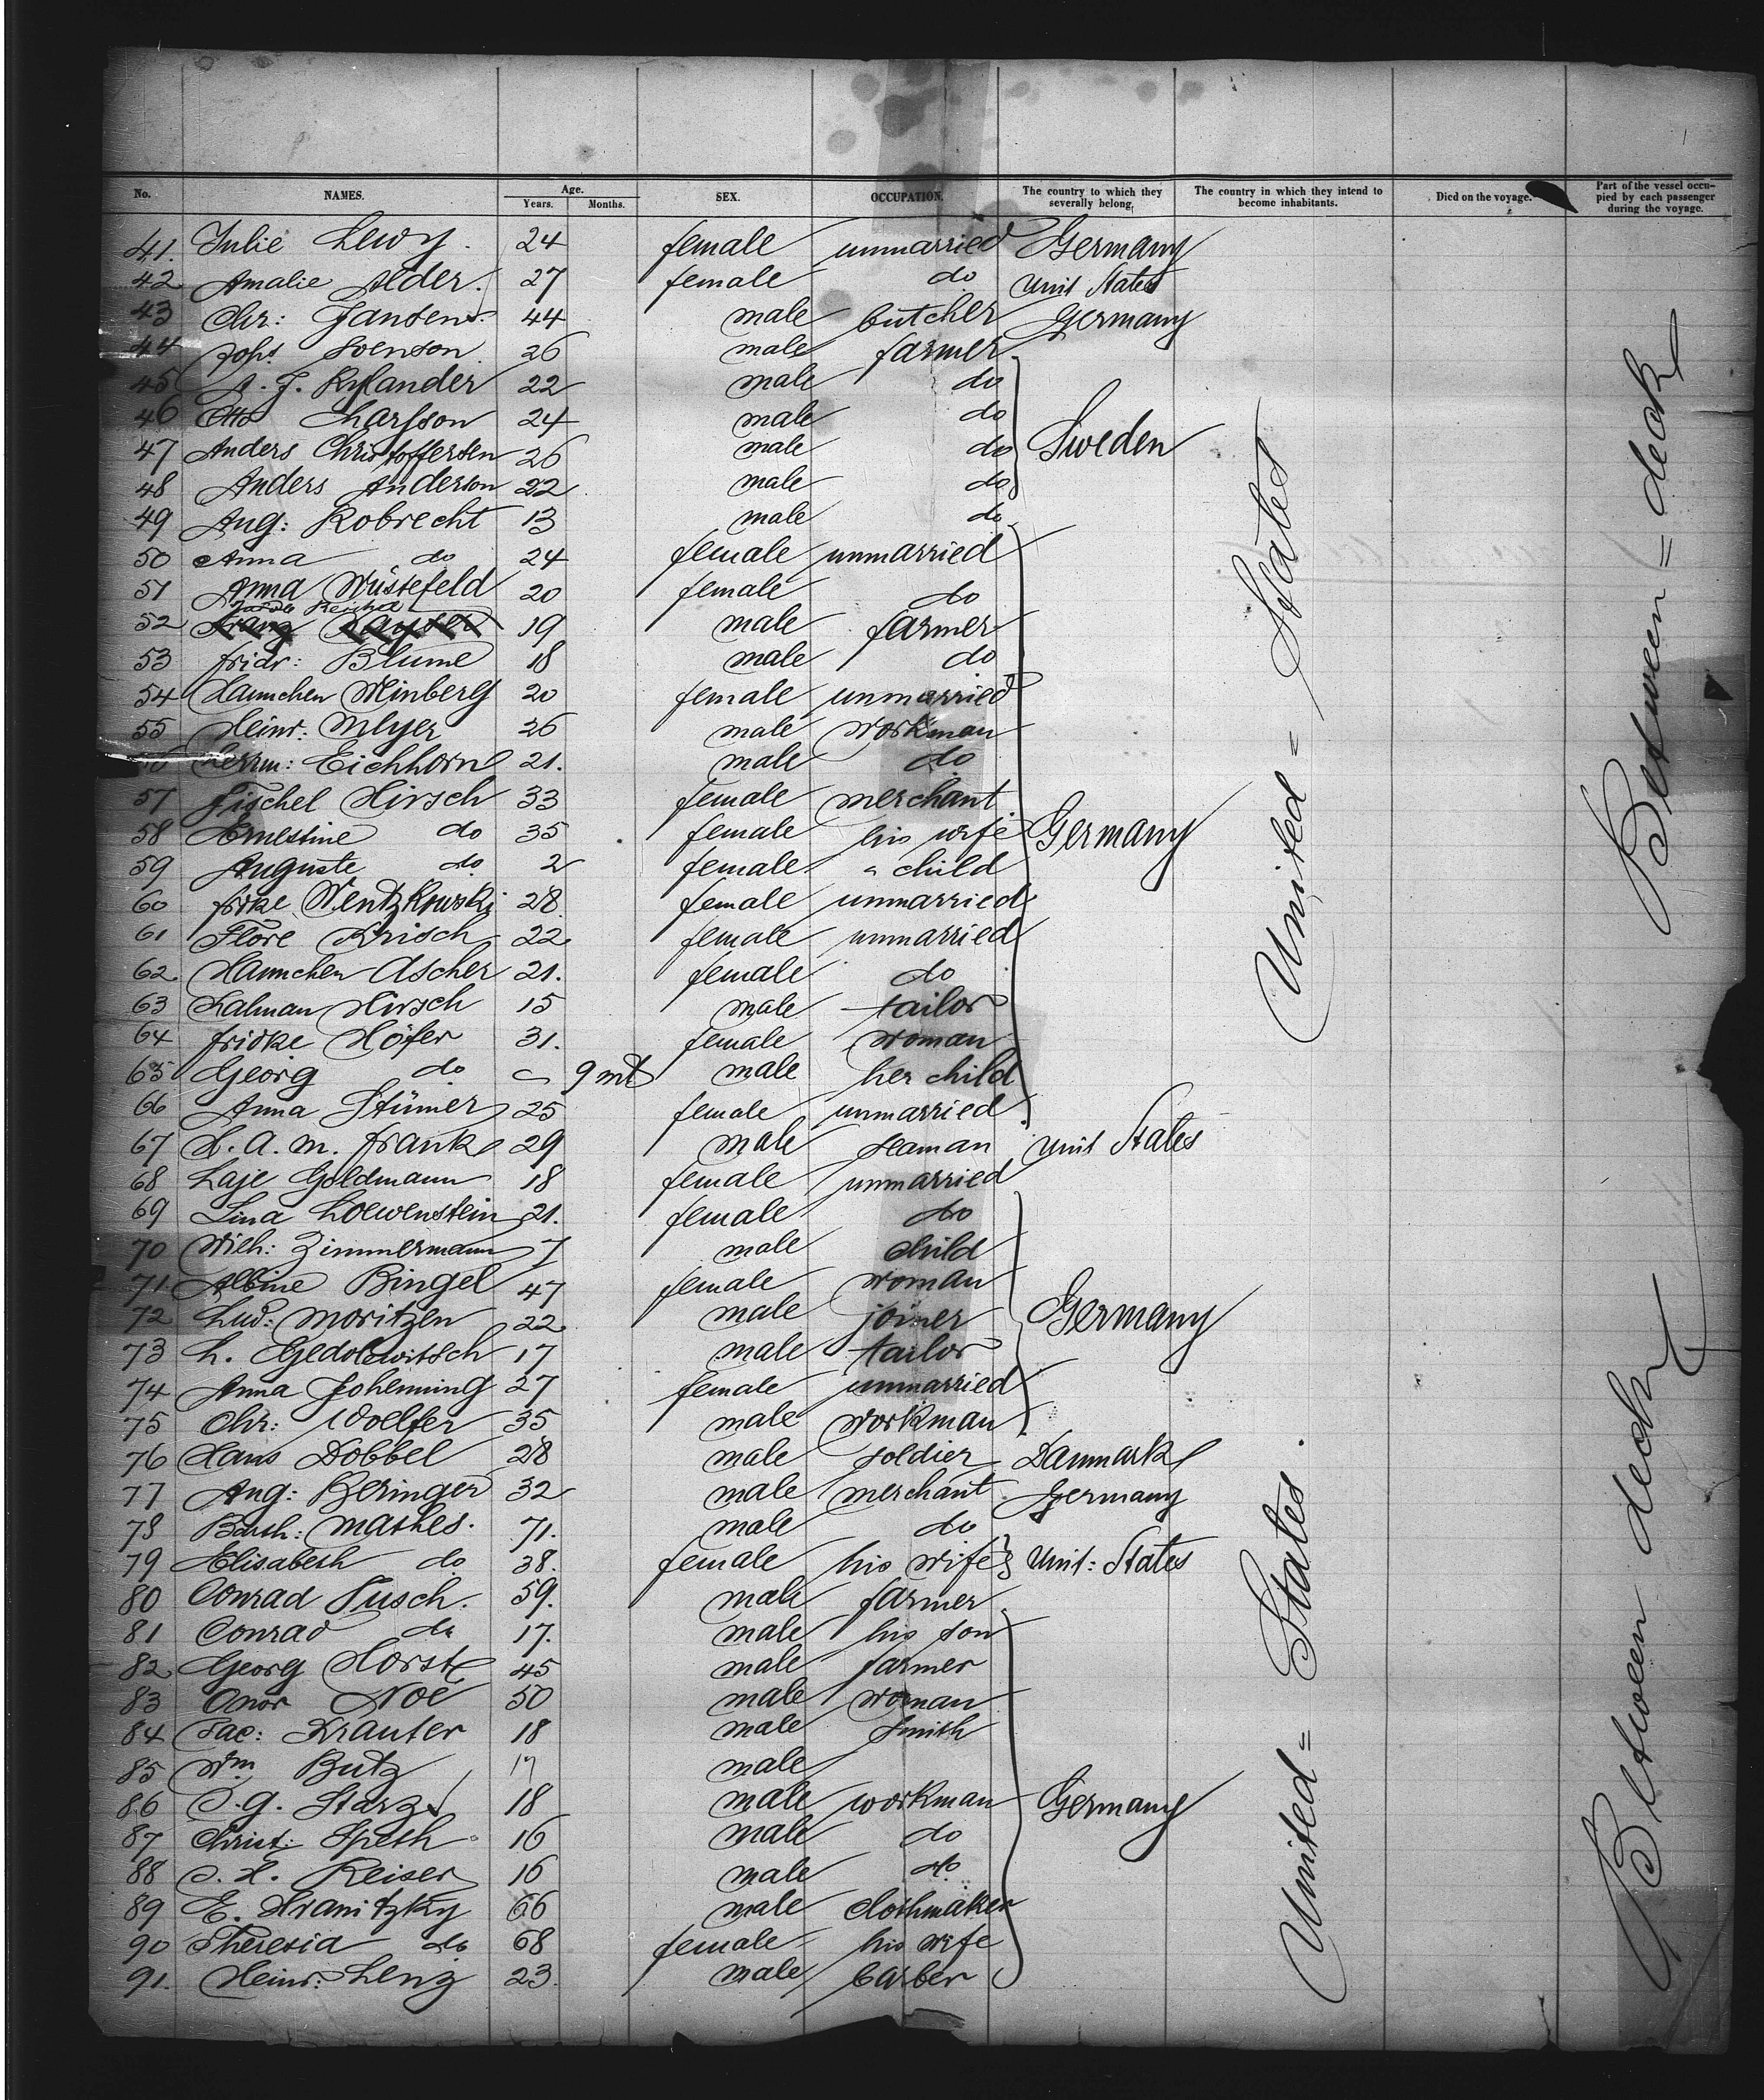 No. NAMES. Age. Years. Months. SEX. OCCUPATION. The country to which they severally belong. The country in which they intend to become inhabitants. Died on the voyage. Part of the vessel occupied by each passenger during the voyage.
41. Julie Lewy. 24 female unmarried Germany
42 Amalie Alder. 27 female do Unit States
43 Chr: Jansen. 44 male butcher Germany
44 Johs Svenson 26 male farmer
45 A. J. Rylander 22 male do
46 Otto Larsson 24 male do
47 Anders Christoffersen 26 male do Sweden
48 Anders Anderson 22 male do
49 Aug: Robrecht 13 male do
50 Anna do 24 female unmarried
51 Anna Wüstefeld 20 female do
52 19 male farmer
53 Fridr: Blume 18 male do
54 Hannchen Minberg 20 female unmarried
55 Heinr: Meyer 26 male workman
56 Herrm: Eichhorn 21. male do
57 Fischel Hirsch 33 female merchant
58 Ernestine do 35 female his wife Germany
59 Auguste do 2 female " child
60 Frdke Wentzkowski 28 female unmarried
61 Flore Krisch 22 female unmarried
62. Hannchen Ascher 21. female do
63 Kalman Hirsch 15 male tailor
64 Fridke Höfer 31. female woman
65 Georg do 9 mt male her child
66 Anna Stümer 25 female unmarried
67 H. A. M. Frank 29 male seaman Unit States
68 Laje Goldmann 18 female unmarried
69 Lina Loewenstein 21. female do
70 Wilh: Zimmermann 7 male child
71 Albine Bingel 47 female woman
72 Lud: Moritzen 22 male joiner Germany
73 L. Gedolewitsch 17 male tailor
74 Anna Johenning 27 female unmarried
75 Chr: Woelfer 35 male workman
76 Hans Dobbel 28 male soldier Danmark
77 Aug: Beringer 32 male merchant Germany
78 Barth: Mathes. 71. male do
79 Elisabeth do 38. female his wife Unit: States
80 Conrad Susch. 59. male farmer
81 Conrad do 17. male his son
82 Georg Horst 45 male farmer
83 Noé 50 male woman
84 Jac: Krauter 18 male smith
85 Wm Butz 17 male
86 C. G. Starz 18 male workman Germany
87 Christ: Speth 16 male do
88 C. H. Reiser 16 male do
89 E. Hranitzky 66 male clothmaker
90 Theresia do 68 female his wife
91. Heinr: Lenz 23. male barber
United = States
United = States.
Between = deck
Between deck